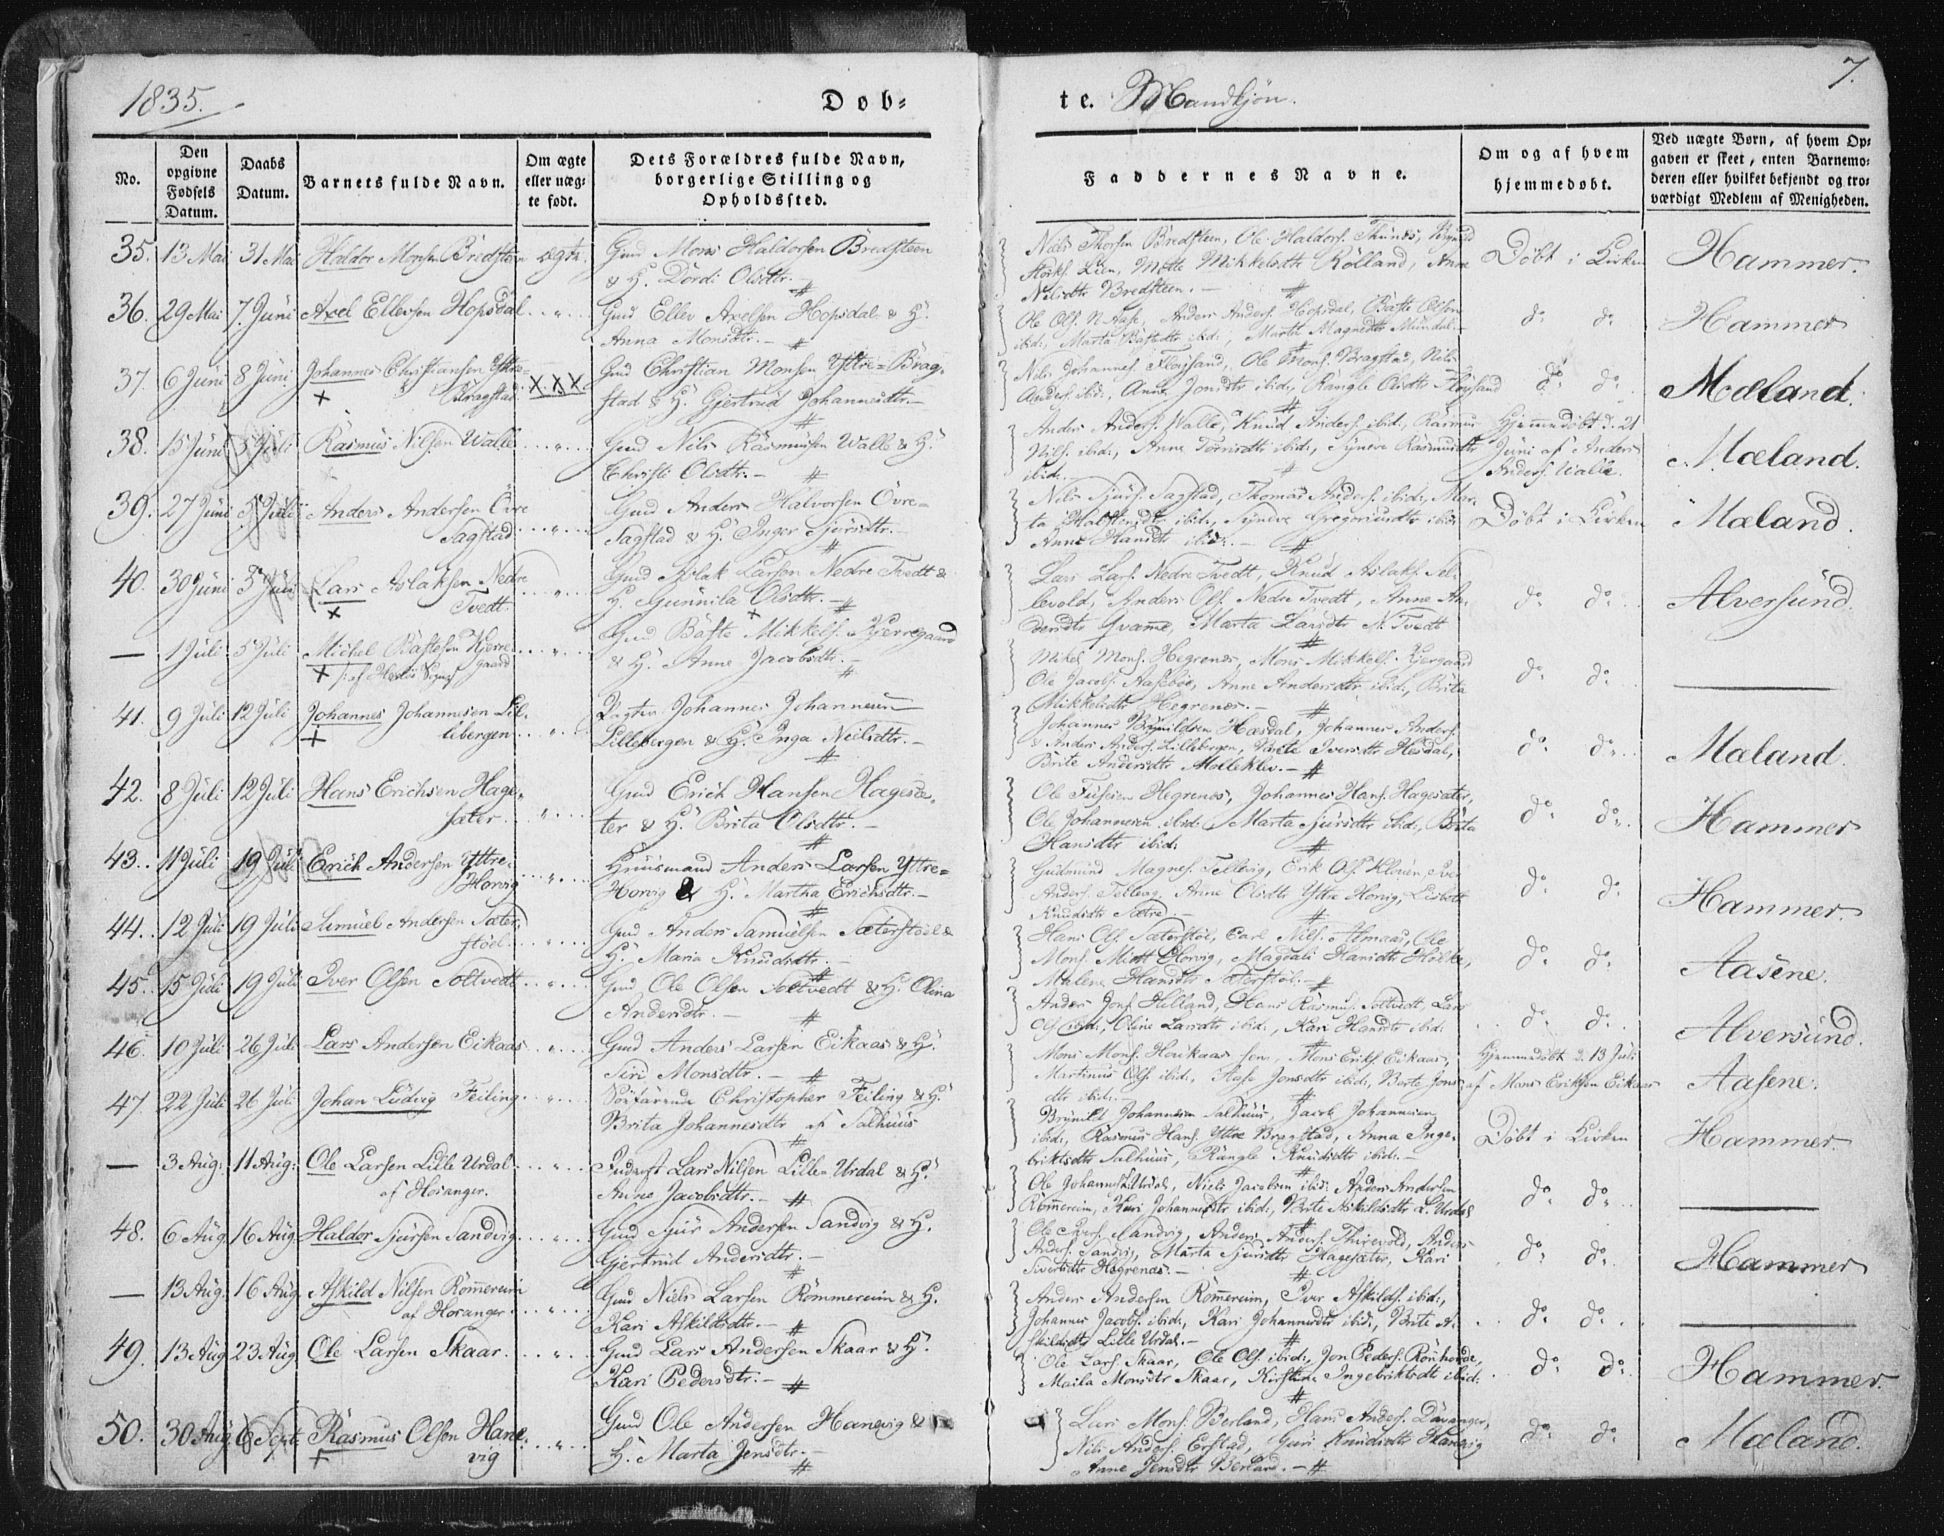 1835.
Døb=
te. Mandkjøn.
7.
No.
Den opgivne Fødsels Datum.
Daabs Datum.
Barnets fulde Navn.
Om ægte eller uæg= te født.
Dets Forældres fulde Navn, borgerlige Stilling og Opholdssted.
Faddernes Navne.
Om og af hvem hjemmedøbt.
Ved uægte Børn, af hvem Op= gaven er skeet, enten Barnemo= deren eller hvilket bekjendt og tro= værdigt Medlem af Menigheden.
35. 13 Mai 31 Mai Haldor Monsen Bredsteen ægte. Gmd Mons Haldorsen Bredsteen
& H. Dordi Olsdtr. —
Niels Thorsen Bredsteen, Ole Haldors. Thunes,
Lien, Mette Mikkelsdtr Rolland, Anne
Nilsdtr Bredsteen. —
Døbt i Kirken Hammer.
36. 29 Mai 7. Juni Axel Ellevsen Hopsdal .. " .. Gmd Ellev Axelsen Hopsdal & H.
Anna Monsdtr. —
Ole Ols. N. Aase, Anders Anders. Hopsdal, Baste Olsen
ibid., Marta Bastedtr ibid., Marte Magnedtr Mundal —
do do Hammer
37. 6 Juni 8 Juni Johannes Christiansen Yttre=
Bragstad. x x x
+
Gmd Christian Monsen Yttre=Brag=
stad & H. Gjertrud Johannesdtr. —
Nils Johannes. Fløysand, Ole Mons. Bragstad, Nils
Anders. ibid., Anne Jonsdtr ibid., Rangle Olsdtr Fløysand
do do Mæland.
38. 15 Juni 5 Juli Rasmus Nilsen Walle .. " .. Gmd Nils Rasmussen Walle & H.
Christi Olsdtr. —
Anders Anders. Walle, Knud Anders. ibid., Rasmus
Nils. ibid., Anne ibid., Synneve Rasmusdtr
ibid.
Hjemmedøbt d. 21
Juni af Anders
Anders. Walle.
Mæland.
39. 27 Juni 5 Juli Anders Andersen Øvre
Sagstad .. " .. Gmd Anders Halvorsen Øvre=
Sagstad & H. Inger Sjursdtr. —
Nils Sjurs. Sagstad, Thomas Anders. ibid., Mar=
ta Halstensdtr ibid., Synneve Gregoriusdtr ibid.
Anne Hansdtr ibid. —
Døbt i Kirken Mæland.
40. 30 Juni 5 Juli Lars Aslaksen Nedre
Tvedt.
+
Gmd Aslak Larsen Nedre Tvedt &
H. Gunnila Olsdtr. —
Lars Lars. Nedre Tvedt, Knud Aslaks.
Anders Ols. Nedre Tvedt, Anne An=
dersdtr Qvamme, Marta Larsdtr N. Tvedt
do do Alversund.
— 1 Juli 5 Juli Michel Bastesen Kjerre=
gaard
+ af Sogn
Gmd Baste Mikkels. Kjerregaard
& H. Anne Jacobsdtr. —
Mikel Mons. Hegrenes, Mons Mikkels. Kjergaard
Ole Jacobs. Aasebøe, Anne Andersdtr ibid., Brita
Mikkelsdtr Hegrenes. —
do do
41. 9 Juli 12 Juli Johannes Johannesen Lil=
lebergen
+
Johannes Johannesen
Lillebergen & H. Inga Neilsdtr. —
Johannes Brynildsen Hæsdal, Johannes Anders.
& Anders Anders. Lillebergen, Brite Iversdtr Hesdal,
Brite Andersdtr Mølleklev. —
do do Mæland.
42. 8 Juli 12 Juli Hans Erichsen Hage=
sæter. .. " .. Gmd Erich Hansen Hagesæ=
ter & H. Brita Olsdtr. —
Ole Hegrenes, Johannes Hans. Hagesæter,
Ole Johannesen ibid., Marta Sjursdtr ibid., Brita
Hansdtr ibid.
do do Hammer
43. 11 Juli 19 Juli Erich Andersen Yttre=
Horvig .. " .. Huusmand Anders Larsen Yttre=
Horvig & H. Martha Erichsdtr. —
Gudmund Magnes. Tellevig, Erik Ols. Iver
Anders. Tellevig, Anne Olsdtr Yttre Horvig, Lisbeth
Knudsdtr Sætre. —
do do Hammer.
44. 12 Juli 19 Juli Samuel Andersen Sæter=
støel. .. " .. Gmd Anders Samuelsen Sæterstøel &
H. Maria Knudsdtr. —
Hans Ols. Sæterstøl, Carl Nils. Almaas, Ole
Mons. Midt Horvig, Magdali Hansdtr
Malene Hansdtr Sæterstøl. —
do do Aasene.
45. 15 Juli 19 Juli Iver Olsen Toftvedt .. " .. Gmd Ole Olsen Toftvedt & H. Olina
Andersdtr. —
Anders Jons. Helland, Hans Rasmus. Toftvedt, Lars
Ols. ibid., Oline Larsdtr ibid., Kari Hansdtr ibid.
do do Alversund.
46. 10 Juli 26 Juli Lars Andersen Eikaas .. " .. Gmd Anders Larsen Eikaas & H.
Siri Monsdtr. —
Mons Mons. Horikaas sen., Mons Eriks. Eikaas,
Martinus Ols. ibid., Aase Jonsdtr ibid., Berte Jons=
dtr ibid. —
Hjemmedøbt d. 13 Juli
af Mons Eriksen Eikaas
Aasene.
47. 22 Juli 26 Juli Johan Ludvig Feiling. .. " .. Søefarende Christopher Feiling & H.
Brita Johannesdtr af Salhuus
Brynild Johannesen Salhuus, Jacob Johannesen
ibid., Rasmus Hans. Yttre Bragstad, Anna Inge=
brictsdtr Salhuus, Rangle Knudsdtr ibid. —
Døbt i Kirken Hammer
— 3 Aug: 11 Aug: Ole Larsen Lille Urdal
af Hosanger.
.. " .. Lars Nilsen Lille=Urdal & H.
Anne Jacobsdtr. —
Ole Johannes. Urdal, Niels Jacobsen ibid., Anders Andersen
Rømmereim, Kari Johannesdtr ibid., Brite Askildsdtr L. Urdal
do do
48. 6 Aug. 16 Aug. Haldor Sjursen Sandvig .. " .. Gmd Sjur Andersen Sandvig & H.
Gjertrud Andersdtr. —
Ole Ivers. Sandvig, Anders Anders. Anders
Anders. Sandvig, Marta Sjursdtr Hagesæter, Kari
Siversdtr Hegrenes. —
do do Hammer
— 13 Aug. 16 Aug. Askild Nilsen Rømmereim
af Hosanger .. " .. Gmd Niels Larsen Rømmereim & H.
Kari Askildsdtr. —
Anders Andersen Rømmereim, Iver Askilds. ibid.,
Johannes Jacobs. ibid., Kari Johannesdtr ibid., Brite A=
skildsdtr Lille Urdal. —
do do
49. 13 Aug 23 Aug. Ole Larsen Skaar. .. " .. Gmd Lars Andersen Skaar & H.
Kari Pedersdtr. —
Ole Lars. Skaar, Ole Ols. ibid., Jon Peders. Rønhovde,
Maila Monsdtr Skaar, Kirstine Ingebriktsdtr ibid.
do do Hammer.
50. 30 Aug. 6 Sept. Rasmus Olsen Hane=
vig
+
.. " .. Gmd Ole Andersen Hanevig &
H. Marta Jensdtr. —
Lars Mons. Berland, Hans Anders. Davanger,
Nils Anders. Erstad, Guri Knudsdtr Hanevig
Anne Jensdtr Berland. —
do do Mæland.